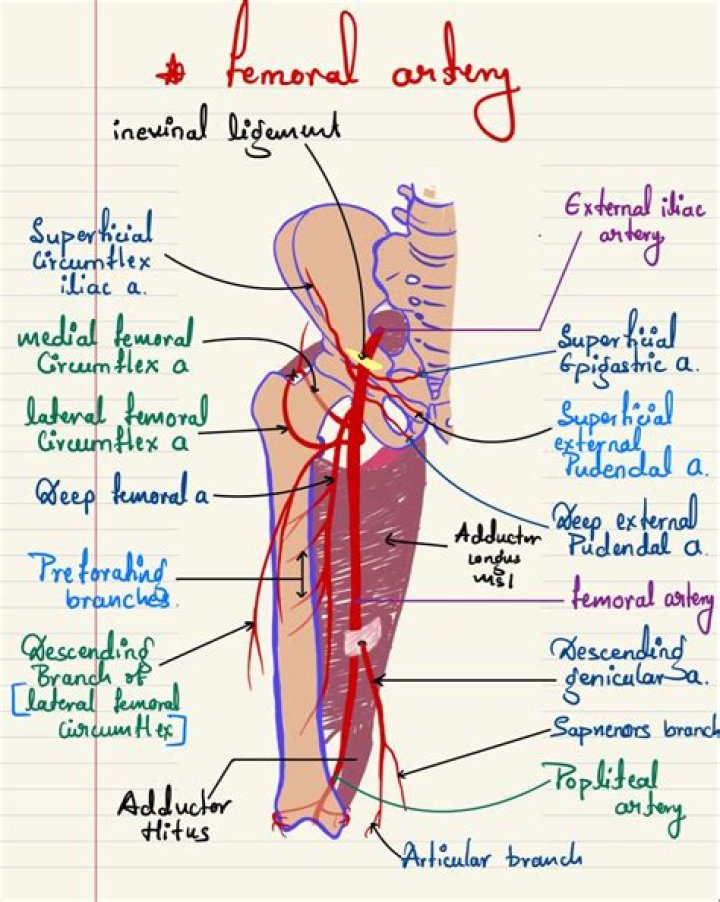 * femoral artery
inevinal ligement
External iliac
artery
Superficial
Circumflex
iliac a.
medial femoral
Circumflex a
Superficial
Epigastric a.
lateral femoral
Circumflex a
Superficial
external
Pudendal a.
Deep femoral a
Deep external
Pudendal a.
Adductor
longus
msl
Preforating
branches.
femoral artery
Descending
Branch of
[lateral femoral
Circumflex]
Descending
genicular a.
Sapnenors branch
Popliteal
artery
Adductor
Hitus
Articular branch